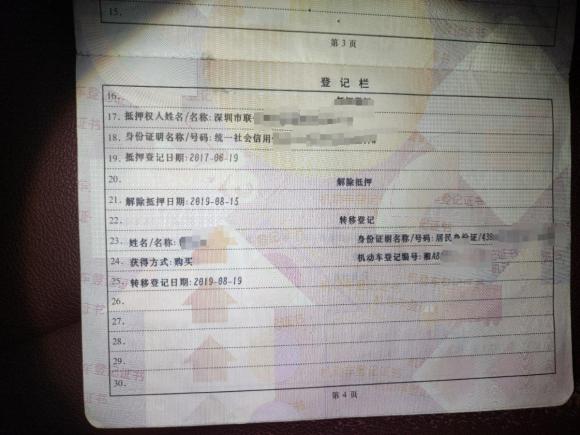 15.
第3页
登记栏
16.
17. 抵押权人姓名/名称:深圳市联
18. 身份证明名称/号码:统一社会信用
19. 抵押登记日期:2017-06-19
20. 解除抵押
21. 解除抵押日期:2019-08-15
22. 转移登记
23. 姓名/名称: 身份证明名称/号码:居民身份证/430
24. 获得方式:购买 机动车登记编号:湘A8
25. 转移登记日期:2019-08-19
26.
27.
28.
29.
30.
第4页